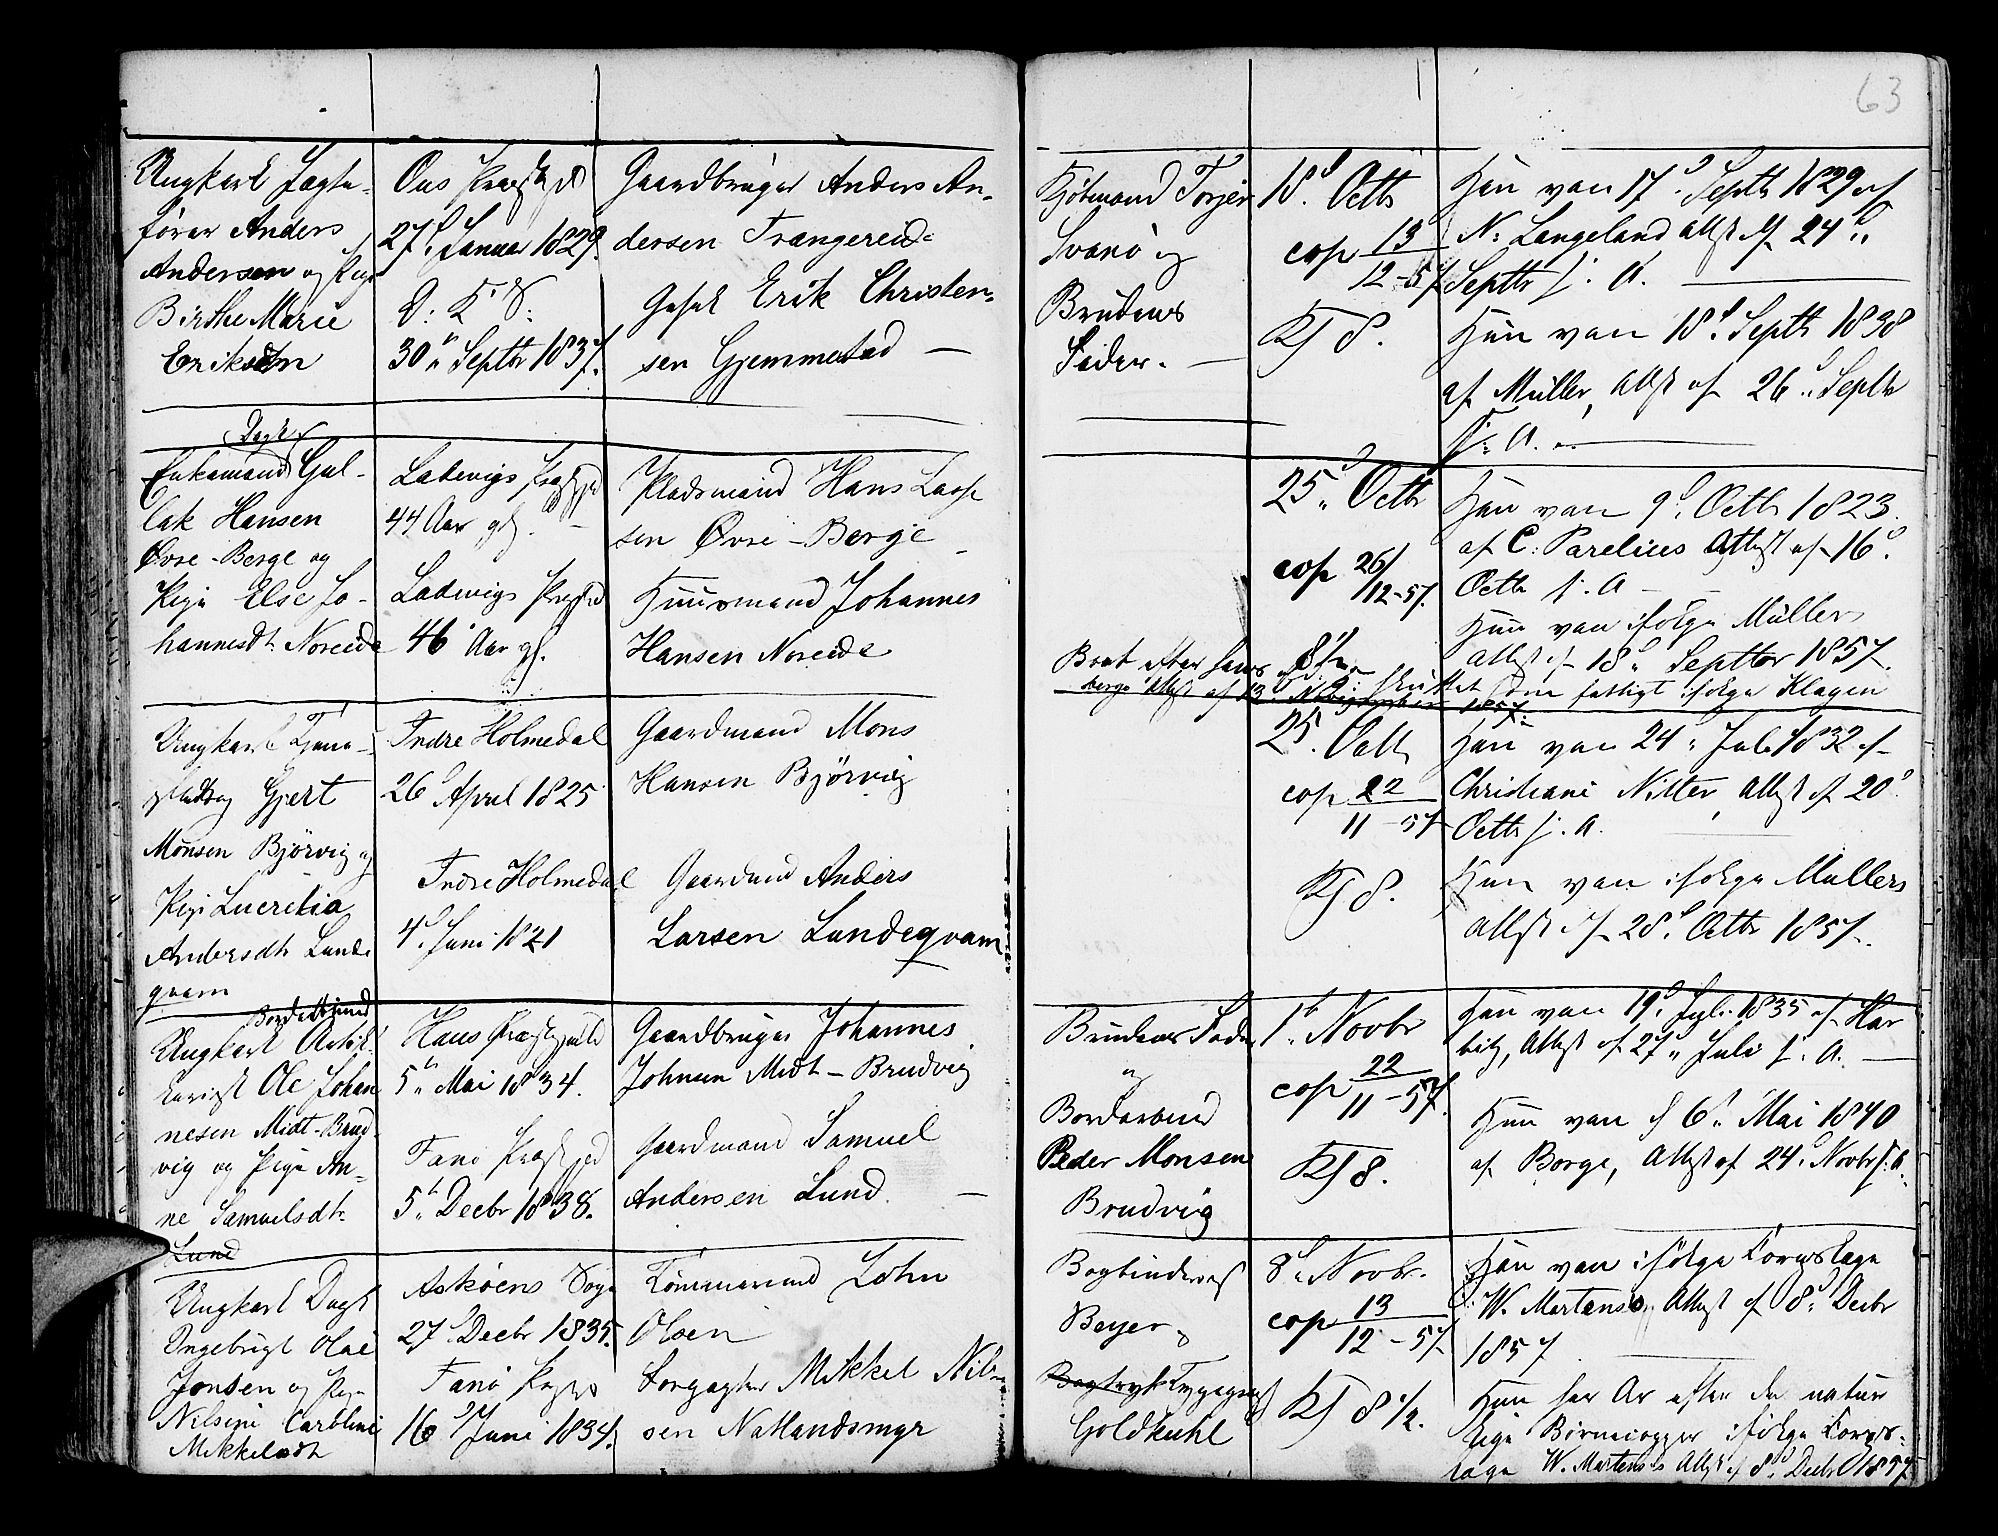 63
Ungkarl Jægte-
fører Anders
Andersen og Pige
Birthe Marie
Eriksdtr
Ous Præstgjd
27d. Januar 1829.
30te Septbr 1837.
Gaardbruger Anders An-
dersen Trængereid-
Erik Christen-
sen Gjemmestad —
Kjøbmand Torjer
Svanø og
Brudens
Fader. —
18d. Octb
cop 13/12-57
Kj 8.
Han vac 17d. Septb 1829 af
N: Langeland Attest af 24d.
Septbr s: A. —
Hun vac 18d. Septb 1838
af Müller, Attest af 26d. Septb
s: A. —
Dagk
Enkemand Gul-
lak Hansen
Øvre-Berge og
Pige Else Jo-
hannesdtr Noreide
Ladvigs Præstgjd
44 Aar gl. —
Ladvigs Præstgjd
46 Aar gl.
Pladsmand Hans Lasse
sen Øvre-Berge
Huusmand Johannes
Hansen Noreide
25d. Octbr
cop 26/12-57.
Han vac 9d. Octb 1823
af C: Parelius Attest af 16d.
Octb s: A —
Hun vac ifølge Müllers
Attest af 18d. Septbr 1857.
Ungkarl Tjene-
Gjert
Monsen Bjørvig og
Pige Lucretia
Andersdtr Lunde
qvam
Indre Holmedal
26d. April 1825
Indre Holmedal
4d. Juni 1821
Gaardmand Mons
Hansen Bjørvig
Gaardmand Anders
Larsen Lundeqvam
25. Octb
cop 22/11-57
Kj 8.
Han vac 24d. Juli 1832 af
Christiani Nitter, Attest af 20d.
Octb s. A.
Hun vac ifølge Müllers
Attest af 28d. Octbr 1857.
Ungkarl
Ole Johan
nesen Midt-Brud
vig og Pige An-
ne Samuelsdtr.
Lund
Haus Præstegjeld
5te Mai 1834.
Fanø Præstgjd
5d. Decbr 1838.
Gaardbruger Johannes
Johnsen Midt-Brudvig
Gaardmand Samuel
Andersen Lund. —
Brudens Fader
og
Peder Monsen
Brudvig
1d. Novbr
cop 22/11-57.
Kj 8.
Han vac 19d. Juli 1835 af Har
bitz, Attest af 27d. Juli s. A. —
Hun vac d 6d. Mai 1840
af Borge, Attest af 24d. Novbr s. A.
Ungkarl Dagk
Ingebrigt Olai
Jonsen og Pige
Nilsine Caroline
Mikkelsdtr
Askøens Sogn
27d. Decbr 1835.
Fanø Præstgjd
16d. Juni 1834.
Tømmermand John
Olsen
Mikkel Nil-
sen Natlandsmyr
Bogbindersv
Beyer og
Goldkuhl
8d. Novbr.
cop 13/12-57
Kj 8 1/2.
Han vac ifølge Corpslæge
W. Martens's Attest af 8d. Decbr
1857
Hun har Ar efter de natur
lige Børnecopper ifølge Corps-
læge W. Martens's Attest af 8d. Decbr 1857